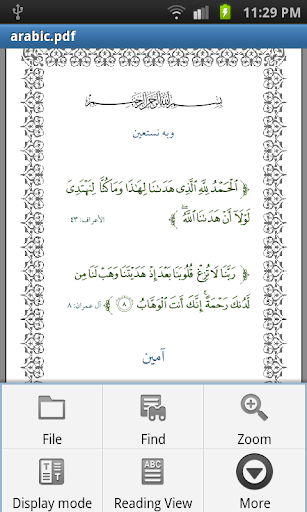 11:29 PM
arabic.pdf
بسم الله الرحمن الرحيم
وبه نستعين
﴿ ٱلْحَمْدُ لِلَّهِ ٱلَّذِى هَدَىٰنَا لِهَٰذَا وَمَا كُنَّا لِنَهْتَدِىَ
لَوْلَآ أَنْ هَدَىٰنَا ٱللَّهُ ﴾ الأعراف: ٤٣
﴿ رَبَّنَا لَا تُزِغْ قُلُوبَنَا بَعْدَ إِذْ هَدَيْتَنَا وَهَبْ لَنَا مِن
لَّدُنكَ رَحْمَةً ۚ إِنَّكَ أَنتَ ٱلْوَهَّابُ ٨ ﴾ آل عمران: ٨
آمين
File Find Zoom
Display mode Reading View More
ABC